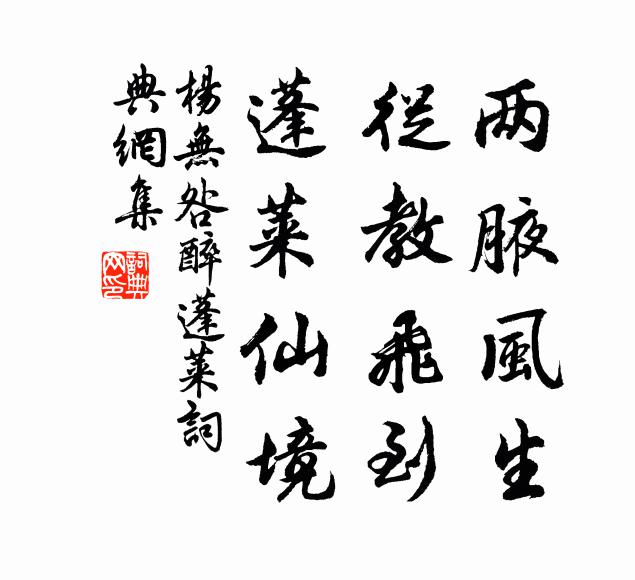 两腋風生
從教飛到
蓬萊仙境
楊無咎醉蓬萊詞
典網集
詞典
网印